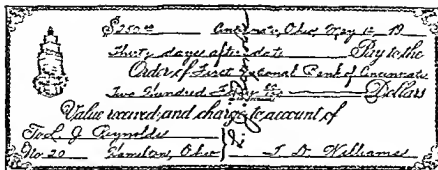 $250.00 Cincinnati, Ohio, May 1st 19
Thirty days after date Pay to the
Order of First National Bank of Cincinnati
Two Hundred Fifty 00 Dollars
Value received, and charge to account of
To L. J. Reynolds
No. 20 Hamilton, Ohio } T. D. Williams